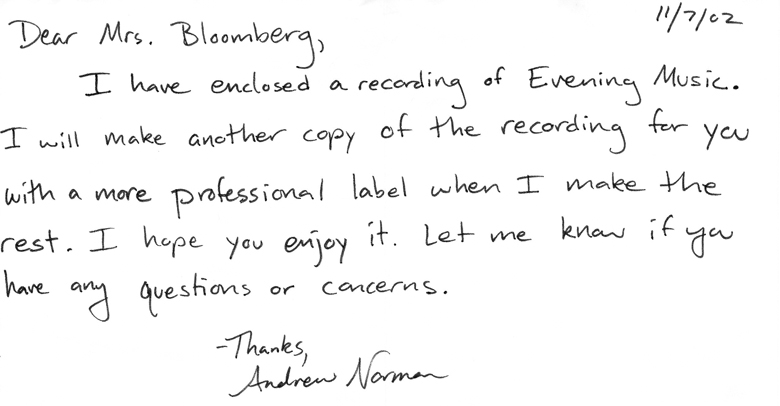 11/7/02
Dear Mrs. Bloomberg,
I have enclosed a recording of Evening Music.
I will make another copy of the recording for you
with a more professional label when I make the
rest. I hope you enjoy it. Let me know if you
have any questions or concerns.
-Thanks,
Andrew Norman